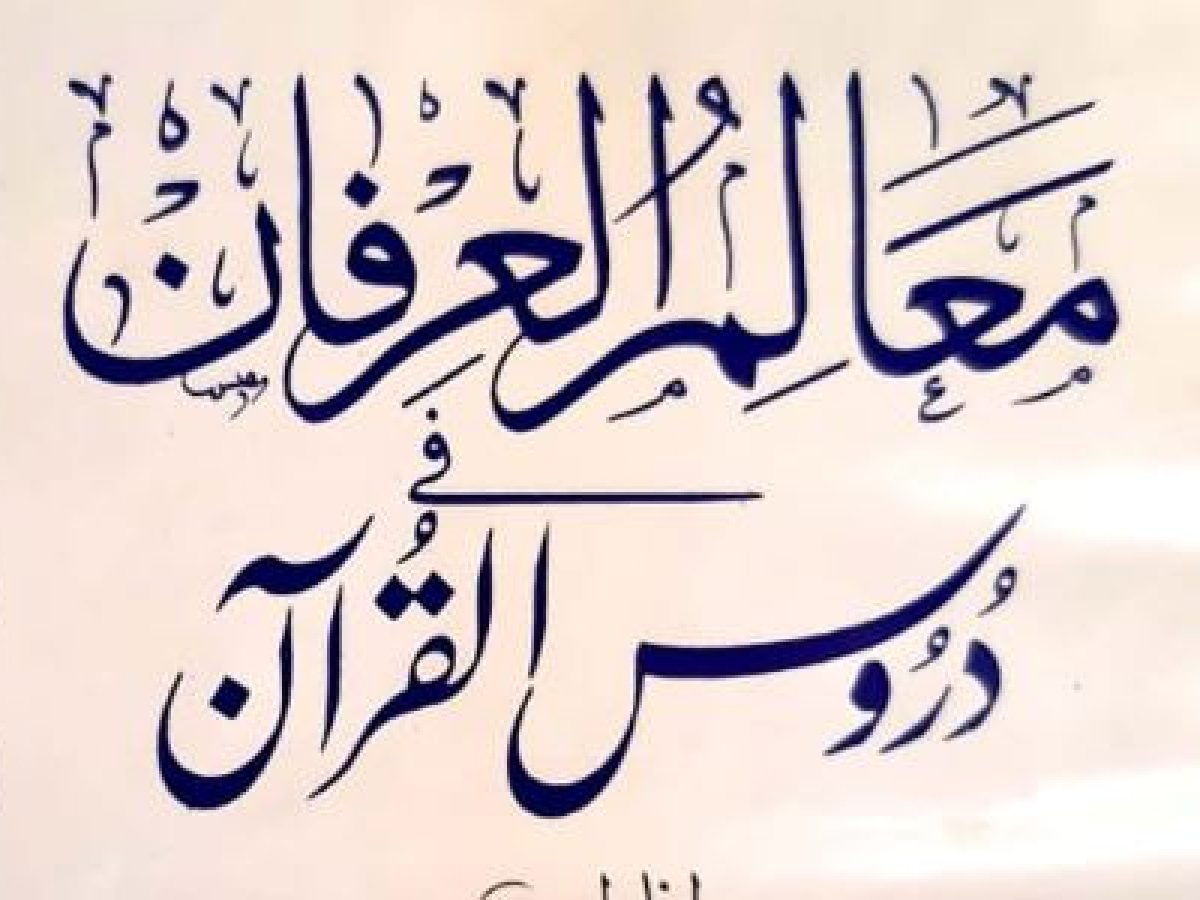 مَعَالِمُ العِرْفَانْ
فی
دُرُوس القُرآن